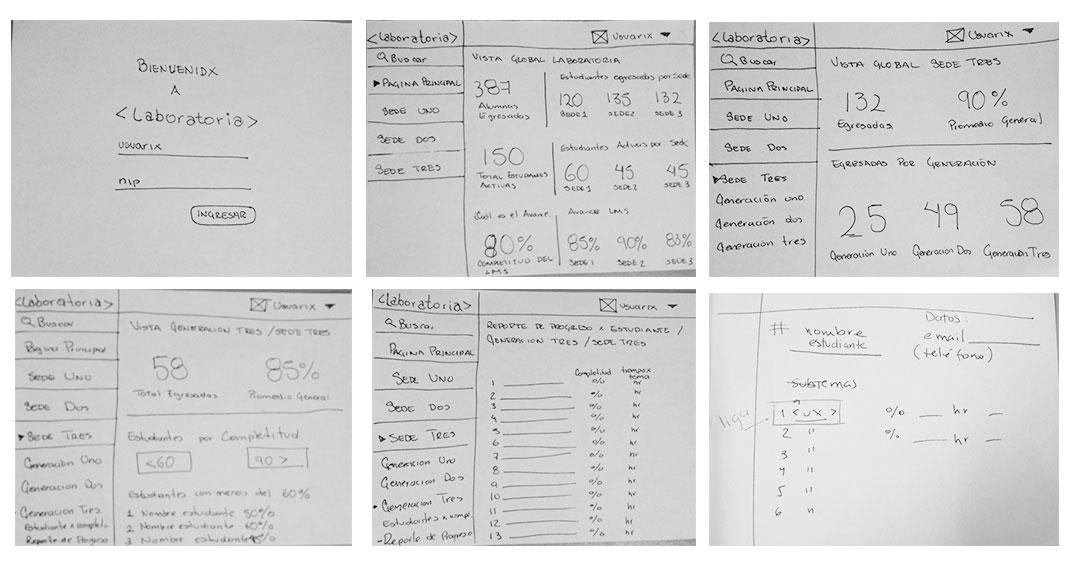 BIENVENIDX
A
<Laboratoria>
usuarix
nip
INGRESAR
<Laboratoria>
Usuarix
Buscar
PAGINA PRINCIPAL
SEDE UNO
SEDE DOS
SEDE TRES
VISTA GLOBAL LABORATORIA
387
Alumnas
Egresadas
Estudiantes egresadas por Sede
120 135 132
SEDE 1 SEDE 2 SEDE 3
150
TOTAL ESTUDIANTES
ACTIVAS
Estudiantes Activas por Sede
60 45 45
SEDE 1 SEDE 2 SEDE 3
Cuál es el Avance
80%
COMPLETITUD DEL
LMS
Avance LMS
85% 90% 83%
SEDE 1 SEDE 2 SEDE 3
<Laboratoria>
Usuarix
Buscar
PAGINA PRINCIPAL
SEDE UNO
SEDE DOS
SEDE TRES
Generación uno
Generación dos
Generación tres
VISTA GLOBAL SEDE TRES
132 90%
Egresadas Promedio General
EGRESADAS POR GENERACIÓN
25 49 58
Generación Uno Generación Dos Generación Tres
<Laboratoria>
Usuarix
Buscar
Pagina Principal
SEDE UNO
SEDE DOS
SEDE TRES
Generación Uno
Generacion Dos
Generacion Tres
Estudiante x complet.
Reporte de Progreso
VISTA GENERACION TRES / SEDE TRES
58 85%
Total Egresadas Promedio General
Estudiantes por Completitud
<60 90>
Estudiantes con menos del 60%
1 Nombre estudiante 50%
2 Nombre estudiante 60%
3 Nombre estudiante
<Laboratoria>
Usuarix
Buscar
PAGINA PRINCIPAL
SEDE UNO
SEDE DOS
SEDE TRES
Generacion Uno
Generacion Dos
Generacion Tres
Estudiantes x compl.
-Reporte de Progreso
REPORTE DE PROGRESO x ESTUDIANTE /
GENERACION TRES / SEDE TRES
Completitud tiempo x
tema
1 % hr
2 % hr
3 % hr
4 % hr
5 % hr
6 % hr
7 % hr
8 % hr
9 % hr
10 % hr
11 % hr
12 % hr
13 % hr
# nombre
estudiante
Datos:
email
(teléfono)
SUBTEMAS
liga
1 <UX> % hr
2 " % hr
3 "
4 "
5 "
6 "